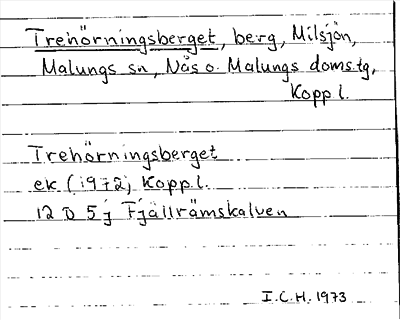 Trehörningsberget, berg, Milsjön,
Malungs sn, Nås o. Malungs doms.tg,
Kopp l.
Trehörningsberget
ek (1972) Kopp.l.
12 D 5 j Fjällrämskalven
I.C.H. 1973